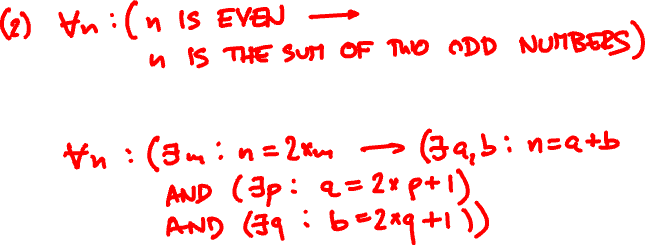 (2) ∀n : ( n IS EVEN ⟶
n IS THE SUM OF TWO ODD NUMBERS)
∀n : (∃m : n = 2*m ⟶ (∃a,b : n=a+b
AND (∃p : a = 2* p+1)
AND (∃q : b=2*q+1))